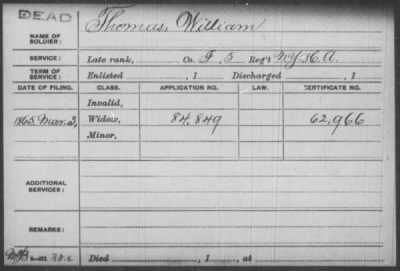 DEAD
Thomas, William
NAME OF SOLDIER:
SERVICE: Late rank, Co. F, 5 Reg't N.Y.H.A.
TERM OF SERVICE: Enlisted , 1 Discharged , 1
DATE OF FILING. CLASS. APPLICATION NO. LAW. CERTIFICATE NO.
Invalid,
1865, Mar. 3, Widow, 84,849 62,966
Minor,
ADDITIONAL SERVICES:
REMARKS:
Died , 1 , at